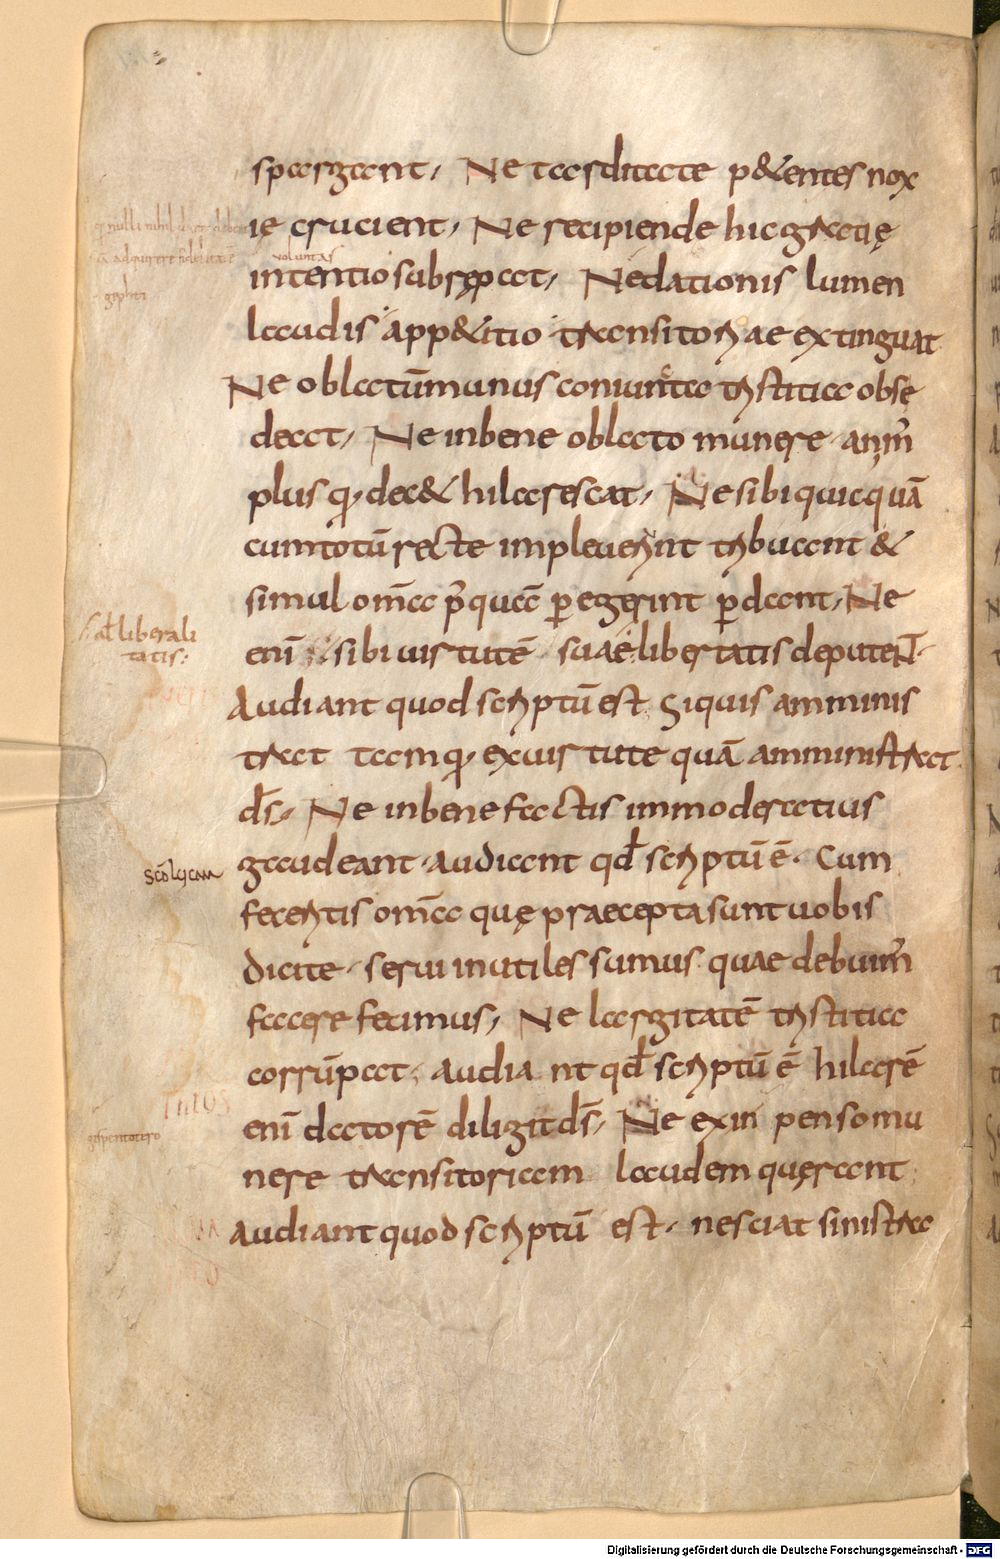 spargant, Ne tarditate p&entes nox
ię crucient, Ne recipiende hic gratię
voluntas
intentio subrępat, Ne dationis lumen
laudis app&itio transitoriae extinguat
Ne oblatū munus coniuncta tristitia obse
deat, Ne in bene oblato munere anim̄
plus qͥ dec& hilarescat, Ne sibi quicquā
cum totū recte impleuerint tribuant &
simul om̄a p̄ quae peregerint perdant, Ne
al liberali
tatis:
enī sibi uirtutē suae libertatis deputeNT
Audiant quod scriptū est Siquis amminis
trat tamqͥ ex uirtute quā amministrat
ds̄, Ne in bene factis immoderatius
gaudeant audiant qd̄ scriptū ē. Cum
feceritis om̄a quę praecepta sunt uobis
dicite serui inutiles sumus quae debuim̄
facere fecimus, Ne largitatē tristitia
corrūpat, audiant qd̄ scriptū ē hilarē
enī datorē diligit ds̄, Ne ex inpenso mu
nere transitoriam laudem quęrant
Audiant quod scriptū est. nesciat sinistra
Digitalisierung gefördert durch die Deutsche Forschungsgemeinschaft - DFG